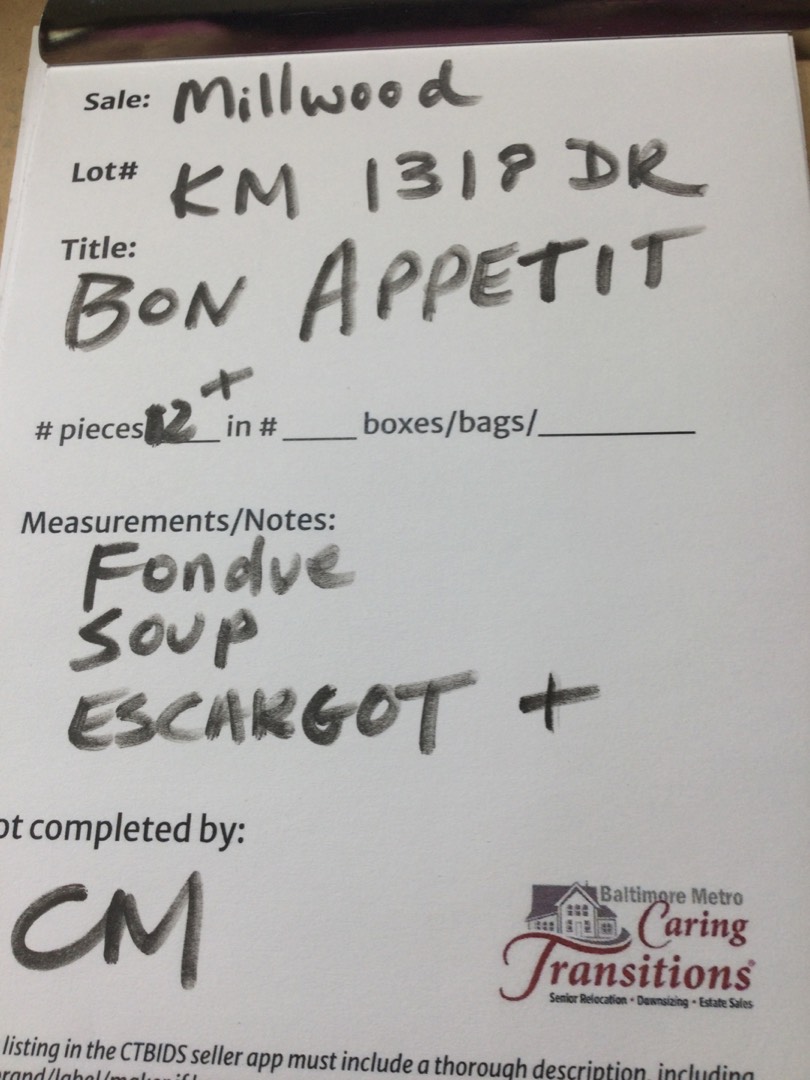 Sale: Millwood
Lot# KM 1318 DR
Title:
BON APPETIT
# pieces 12+ in # ____ boxes/bags/__________
Measurements/Notes:
Fondue
SOUP
ESCARGOT +
ot completed by:
CM
Baltimore Metro
Caring
Transitions®
Senior Relocation • Downsizing • Estate Sales
listing in the CTBIDS seller app must include a thorough description, including